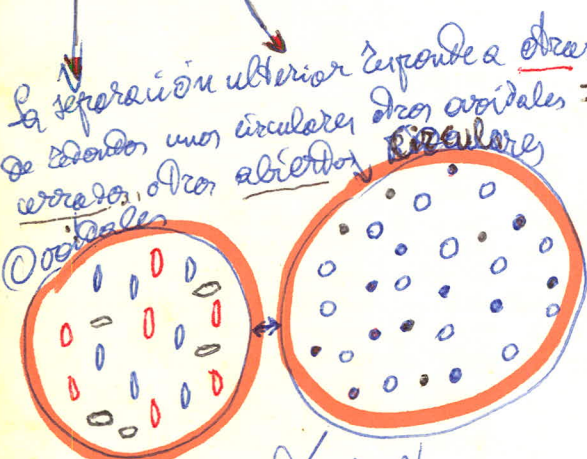 La separación ulterior responde a otra
de redondos unos circulares otros ovoidales
cerrados, otros abiertos Circulares
Ovoidales